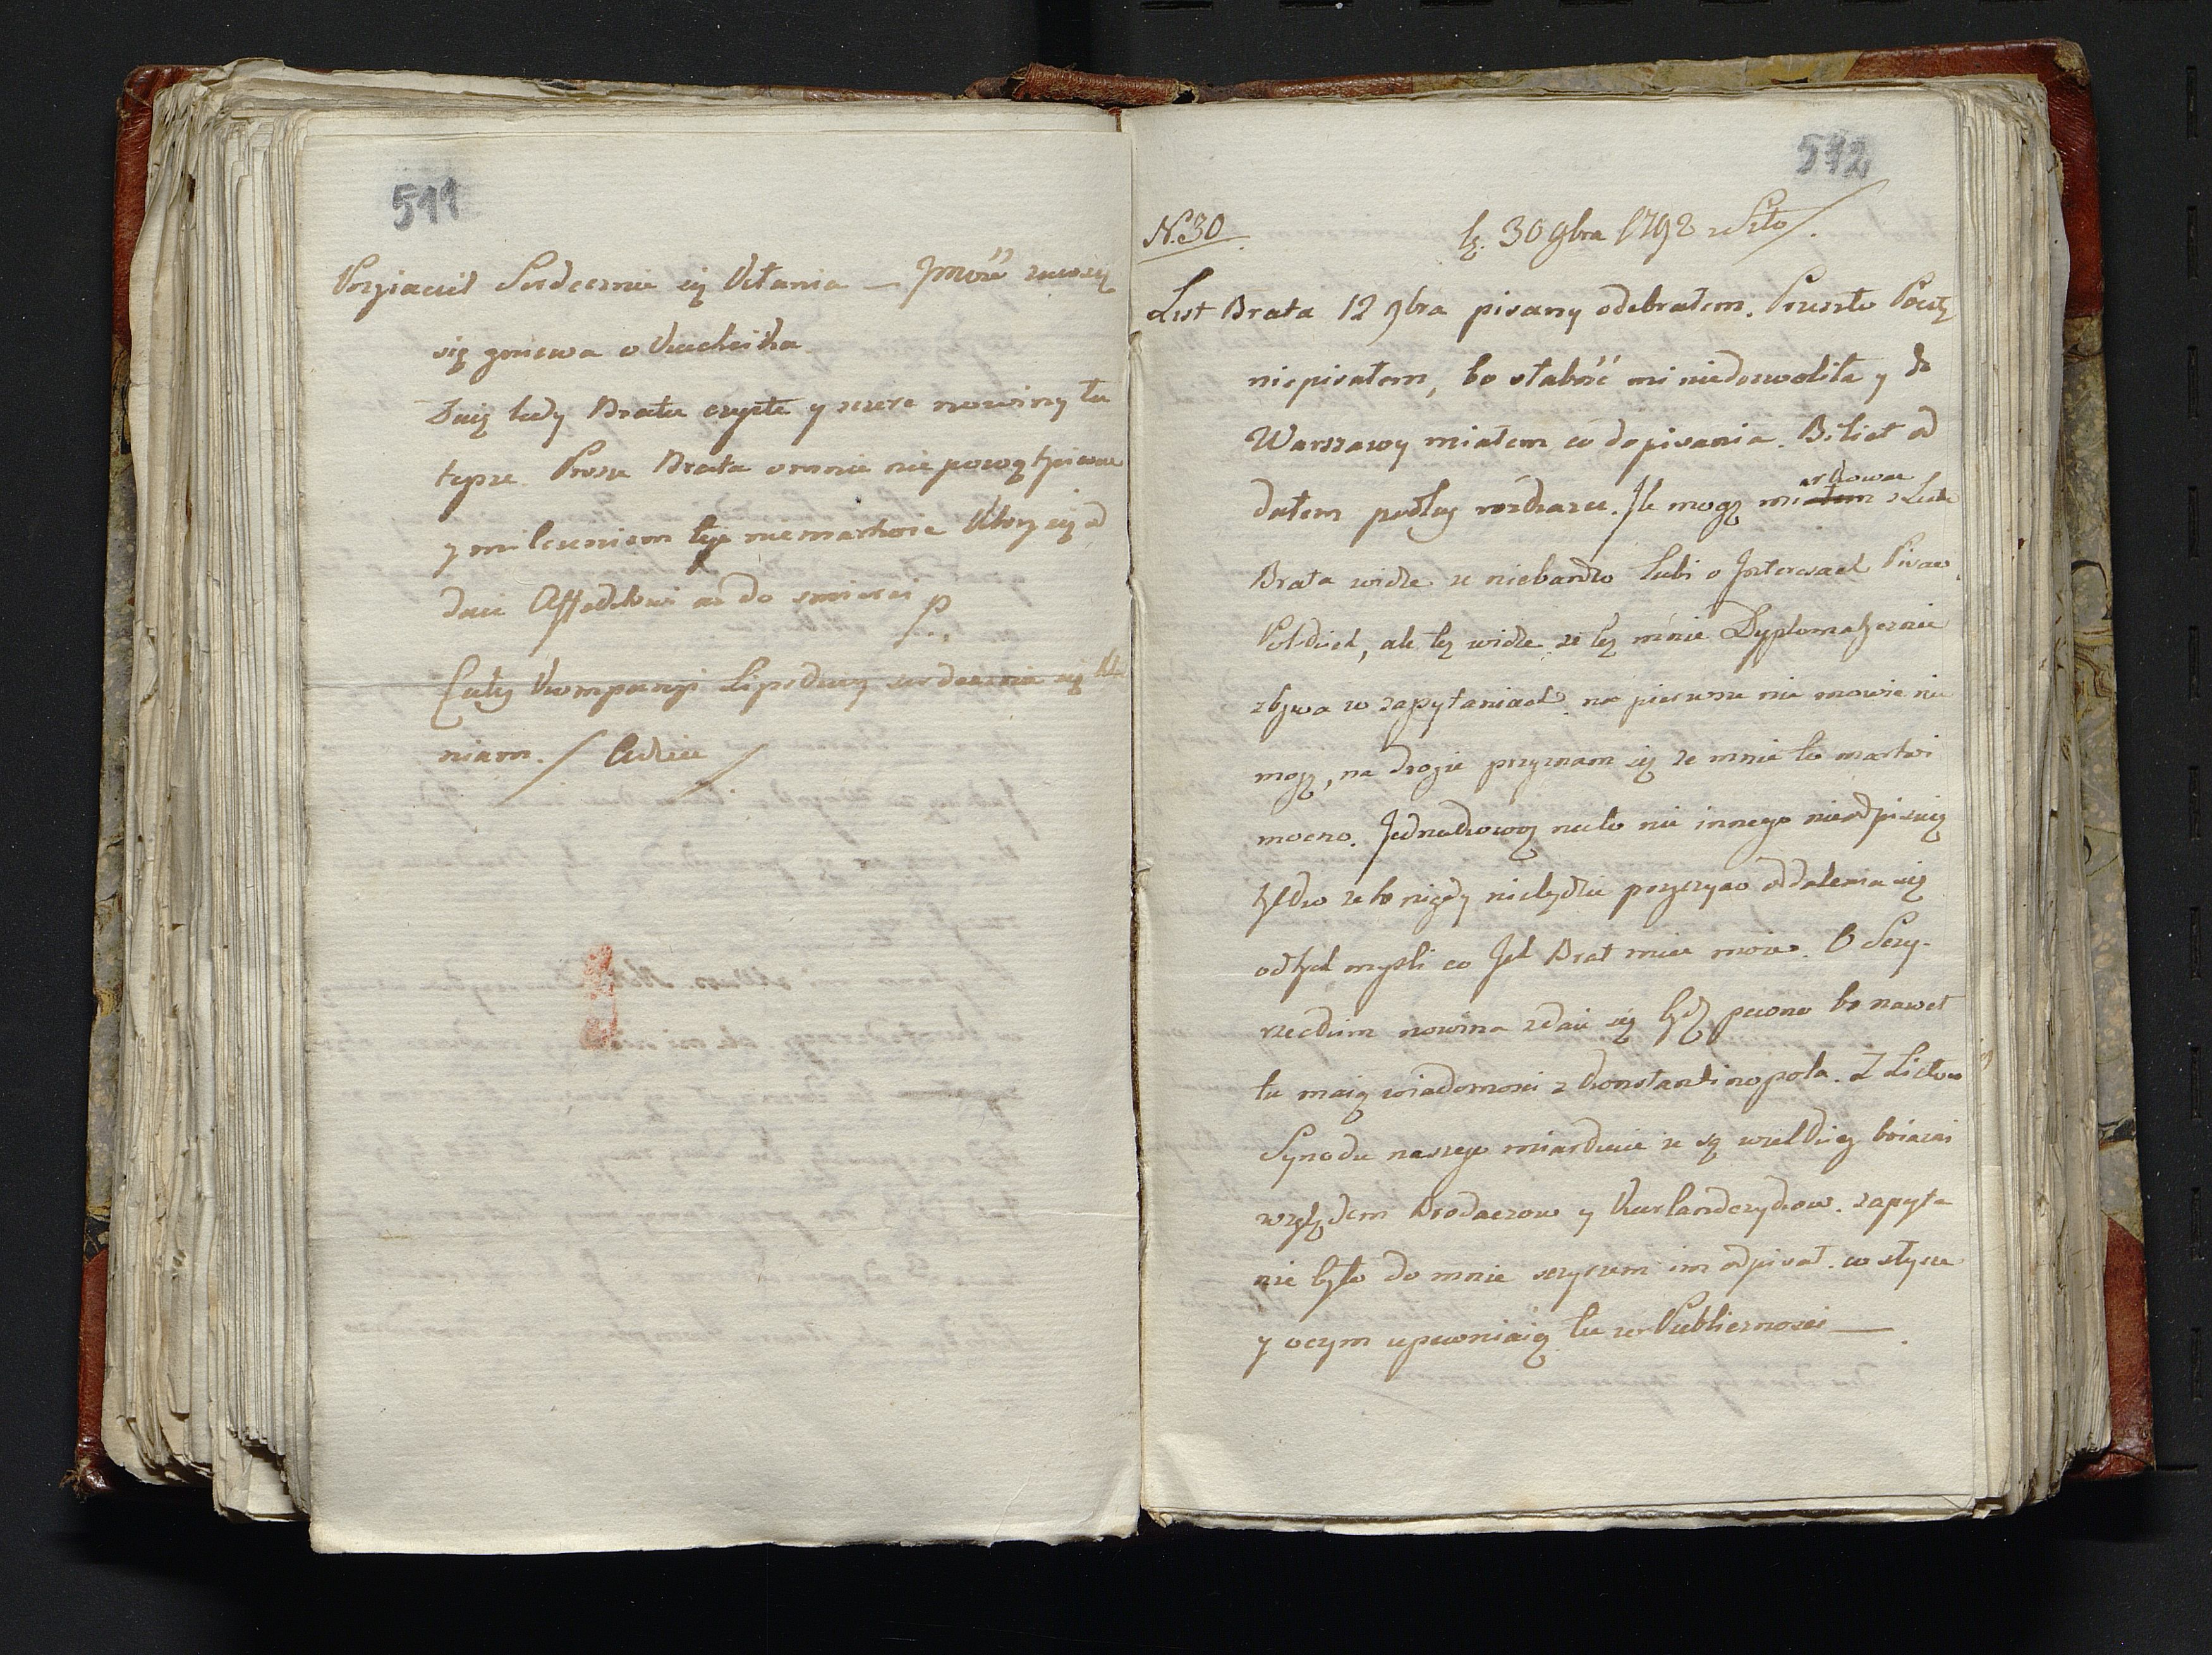 511
Przyiaciel Serdecznie się Kłania — Jmość zawsze
się gniewa o Kucheika
Daię tedy Bratu czyste y szcze nowiny tu
teysze Proszę Brata o mnie nie powątpiewac
y milczeniem tego nie martwic Ktory się od
daie Affektowi az do smierci p
Całey Kompanyi Lipskiey serdecznie się Kła
niam. / Adieu /
512
N. 30
30 9bra 1792 z Szto /.
List Brata 12 9bra pisany odebrałem. Przeszło Pocztę
niepisałem, bo słabość mi niedozwoliła y do
Warszawy miałem co dopisania. Biliet od
dałem podług rozkazu. Ile mogę miałem z Listu
Brata widzę ze niebardzo lubi o Interesach Pisac
Polskich, ale tez widzę ze tez mnie Dyplomatycznie
zbywa w zapytaniach na pierwsze nic mowic nie
mogę, na drogie przyznam się ze mnie to martwi
mocno. Jednakowoz na to nic innego nieodpisuię
tylko ze to nigdy niebędzie przyczyno oddalenia się
od tych mysli co Ich Brat miec moze. O Sery-
rzeckim nowina zdaie się bydz pewno bo nawet
tu maią wiadomosci z Konstantinopola. Z Listow
Synodu naszego miarkuie ze są wielkiey boiazni
względem Brodaczow y Kurlandczykow. zapyta
nie było do mnie szczyrzem im odpisał. co słysze
y oczym upewniaią tu w Publicznosci —